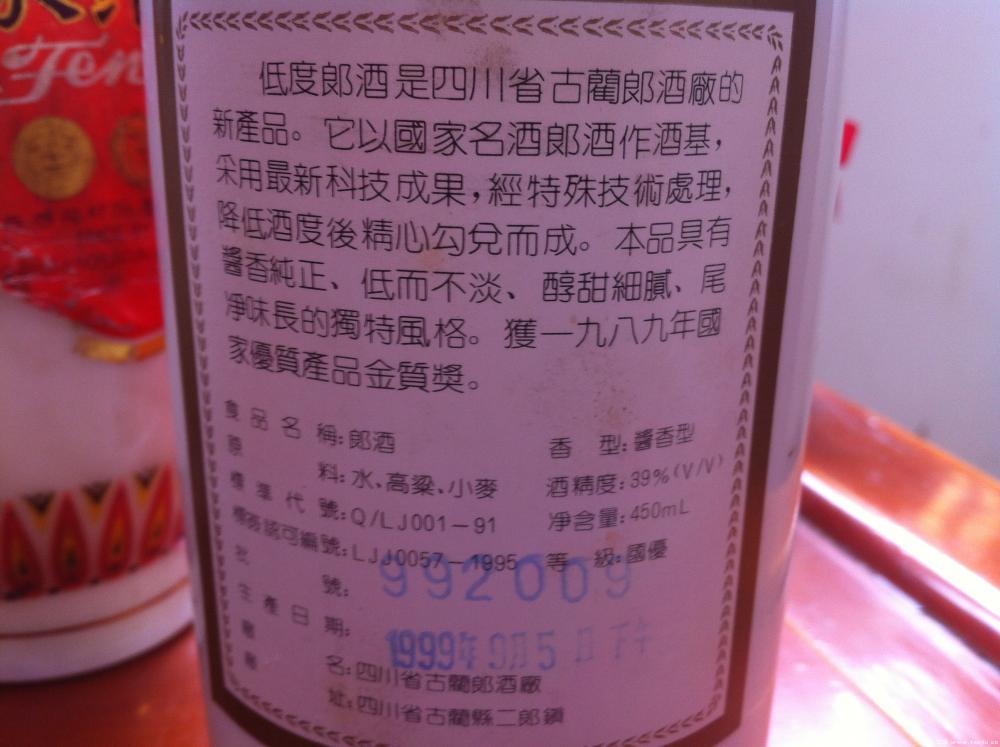 Fen
低度郎酒是四川省古藺郎酒廠的
新產品。它以國家名酒郎酒作酒基，
采用最新科技成果，經特殊技術處理，
降低酒度後精心勾兌而成。本品具有
醬香純正、低而不淡、醇甜細膩、尾
淨味長的獨特風格。獲一九八九年國
家優質產品金質獎。
食品名稱：郎酒 香型：醬香型
原料：水、高粱、小麥 酒精度：39%(V/V)
標準代號：Q/LJ001－91 淨含量：450mL
標簽認可編號：LJJ0057－1995 等級：國優
批號：992009
生產日期：1999年9月5日下午
廠名：四川省古藺郎酒廠
廠址：四川省古藺縣二郎鎮